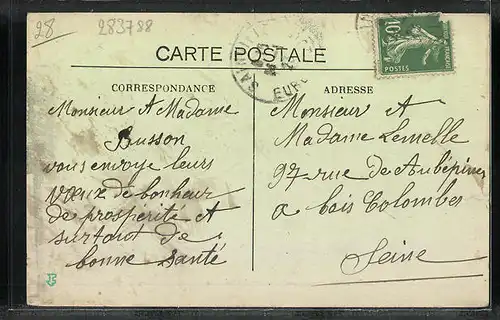 28
283788
CARTE POSTALE
10c
POSTES
EURE
CORRESPONDANCE
Monsieur et Madame
Busson
vous envoye leurs
voeux de bonheur
de prosperité et
surtout de
bonne santé
ADRESSE
Monsieur et
Madame Lemelle
97 rue de Aubépines
a bois Colombes
Seine